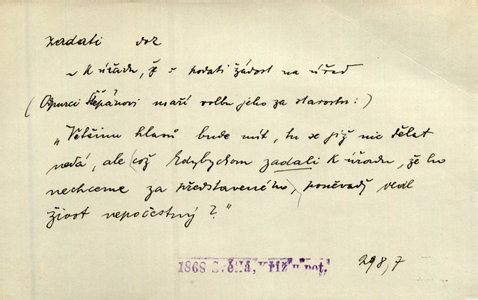 zadati dok
~ k úřadu, ž = podati žádost na úřad
(Odpůrci Štěpánovi maří volbu jeho za starostu:)
„Většinu hlasů bude mít, tu se již nic dělat
nedá, ale což kdybychom zadali k úřadu, že ho
nechceme za představeného, poněvadž vedl
život nepočestný?"
1868 Světlá, Kříž u pot.
298,7